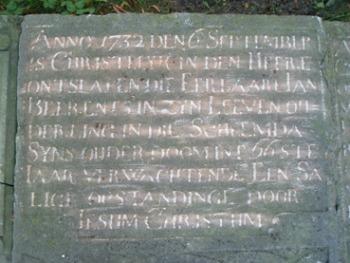 ANNO 1732 DEN 6 SEPTEMBER
IS CHRISTELYC IN DEN HEERE
ONTSLAPEN DIE EERBAARE IAN
BEERENTS IN ZYN LEEVEN OU
DERLING IN DIE SCHEEMDA
SYNS OUDERDOOM INT 66 STE
IAAR VERWACHTENDE EEN SA
LIGE OPSTANDINGE DOOR
IESUM CHRISTUM